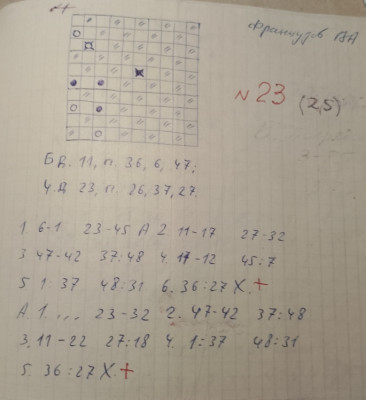 Французов АА
№23 (2,5)
Б Д. 11, п. 36, 6, 47;
Ч.Д 23, п. 26, 37, 27.
1. 6-1 23-45 А 2. 11-17 27-32
3. 47-42 37:48 4. 17-12 45:7
5. 1:37 48:31 6. 36:27 X +
А. 1. ... 23-32 2. 47-42 37:48
3. 11-22 27:18 4. 1:37 48:31
5. 36:27 X +